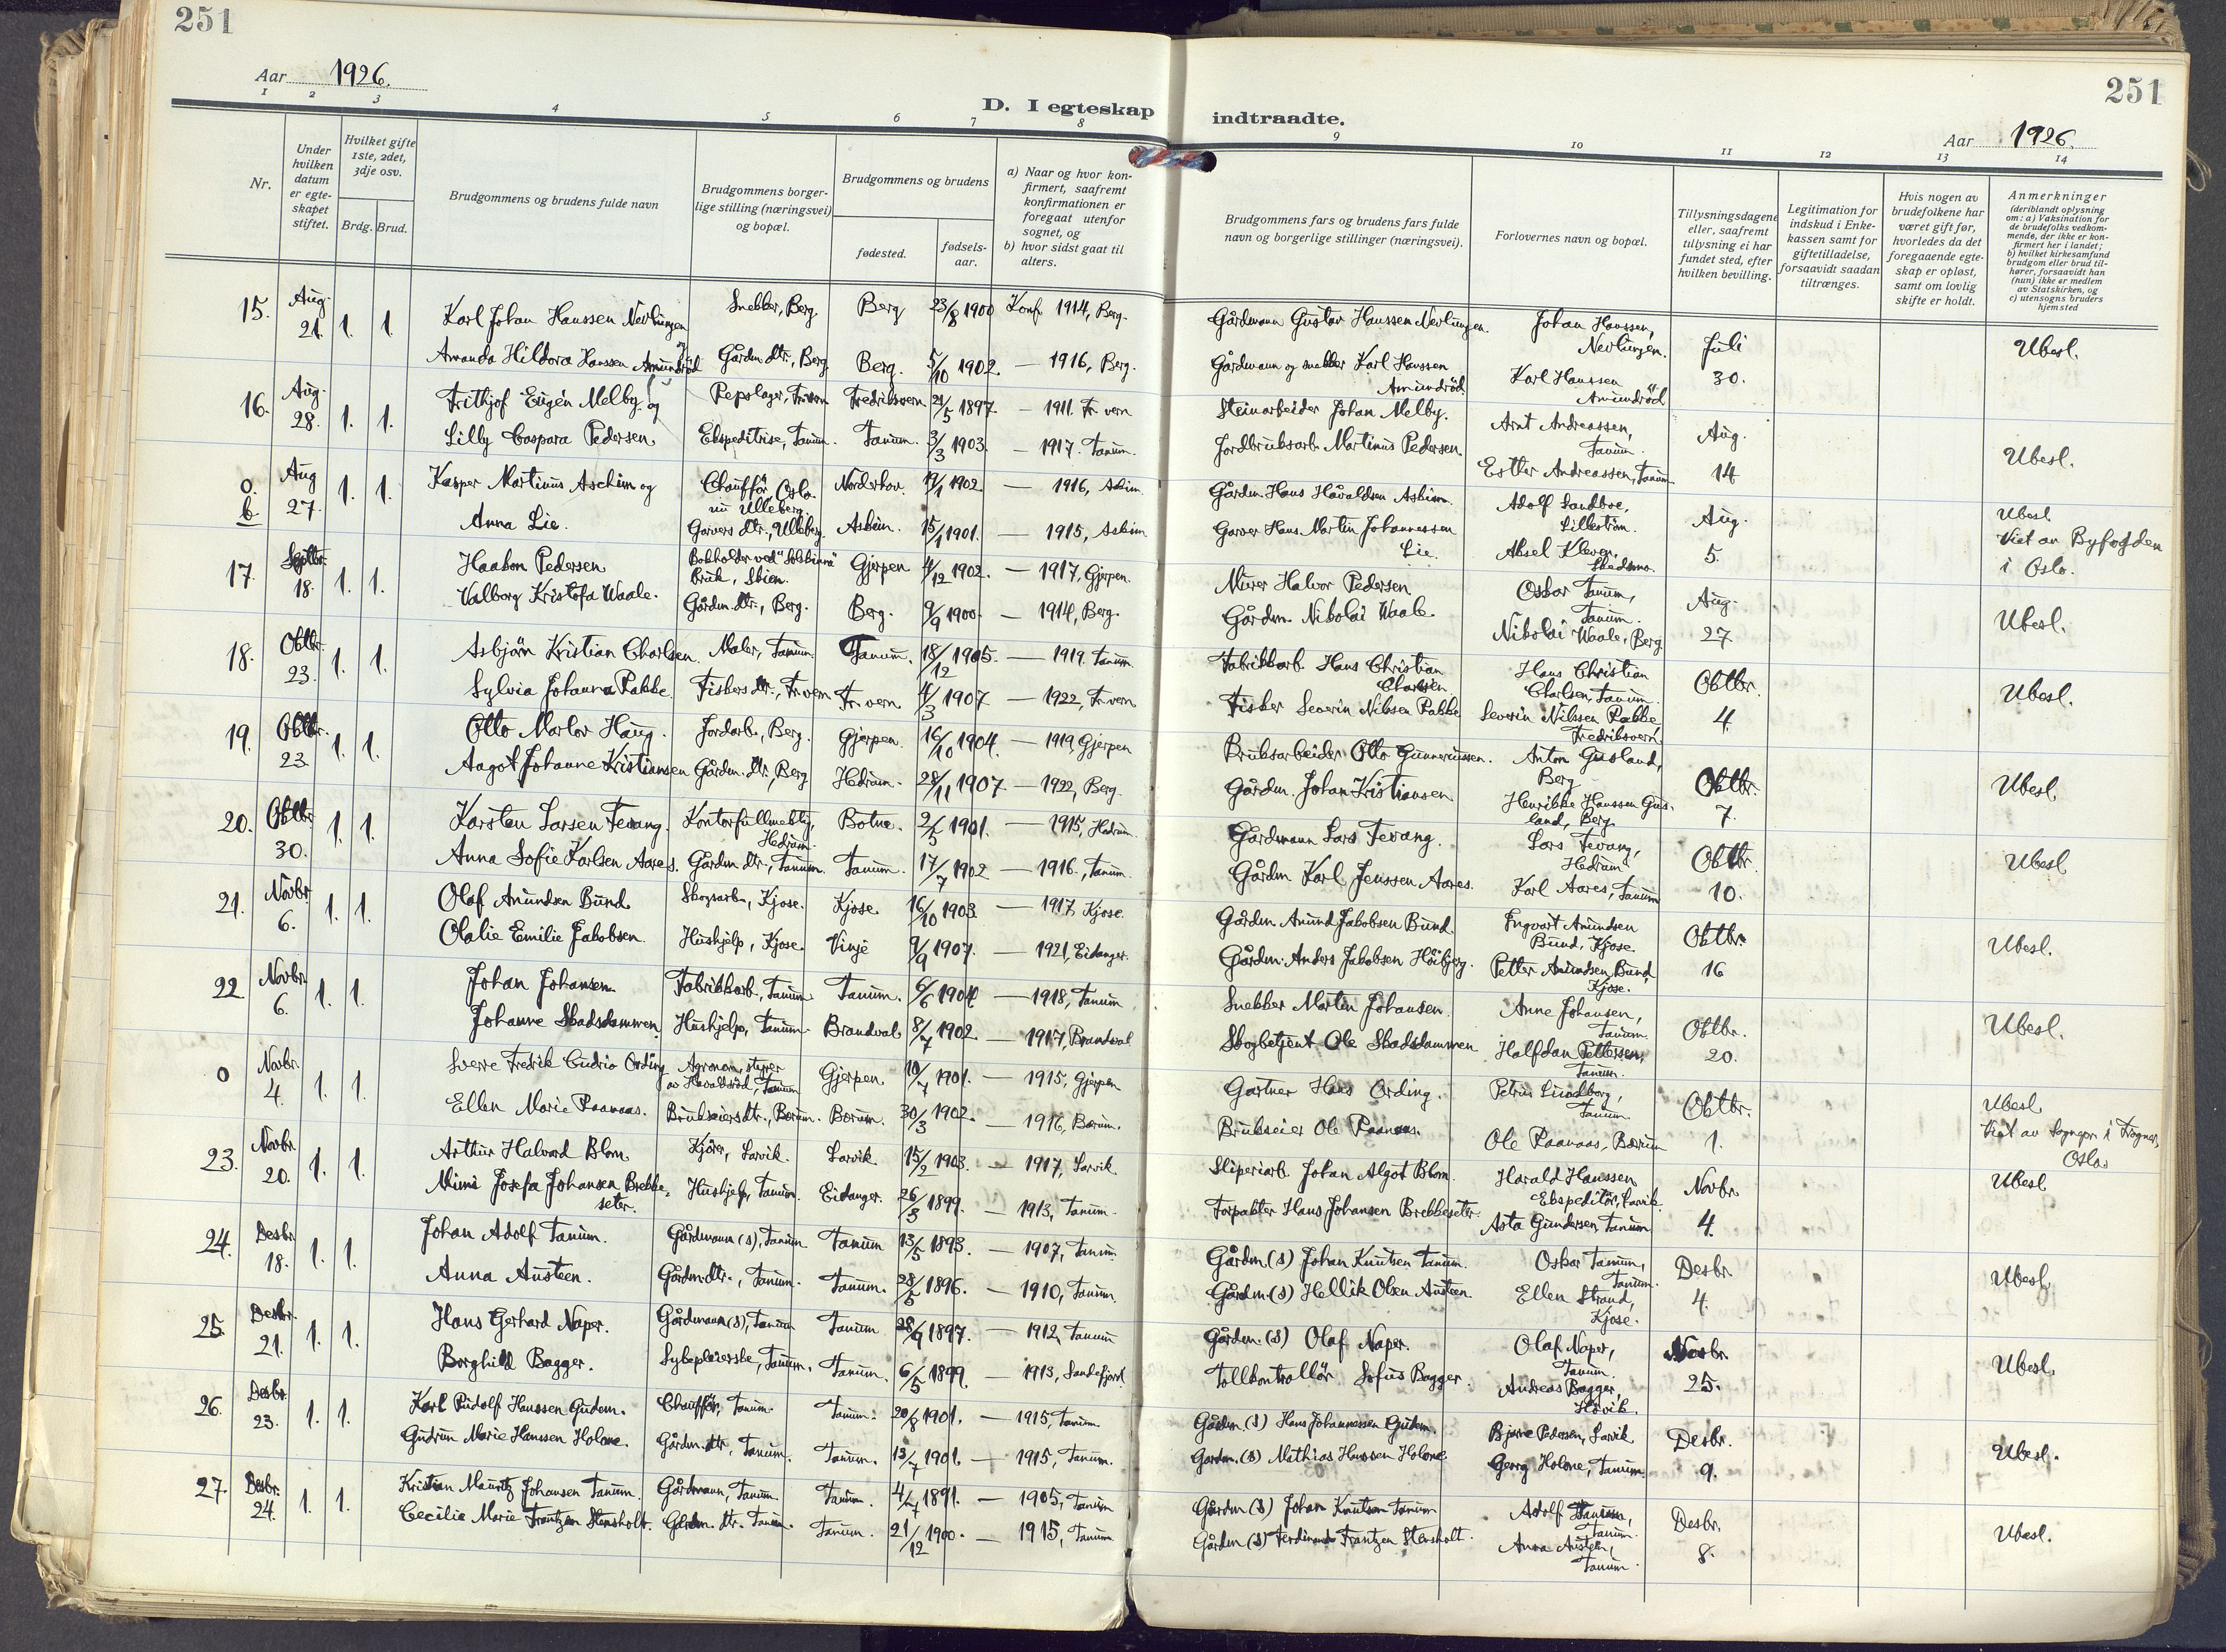 251
Aar 1926.
D. I egteskap indtraadte.
251
Aar 1926.
1 2 3 4 5 6 7 8 9 10 11 12 13 14
Nr.
Under hvilken datum er egteskapet stiftet.
Hvilket gifte 1ste, 2det, 3dje osv.
Brdg. Brud.
Brudgommens og brudens fulde navn
Brudgommens borgerlige stilling (næringsvei) og bopæl.
Brudgommens og brudens
fødested.
fødselsaar.
a) Naar og hvor konfirmert, saafremt konfirmationen er foregaat utenfor sognet, og
b) hvor sidst gaat til alters.
Brudgommens fars og brudens fars fulde navn og borgerlige stillinger (næringsvei).
Forlovernes navn og bopæl.
Tillysningsdagene eller, saafremt tillysning ei har fundet sted, efter hvilken bevilling.
Legitimation for indskud i Enkekassen samt for giftetilladelse, forsaavidt saadan tiltrænges.
Hvis nogen av brudefolkene har været gift før, hvorledes da det foregaaende egteskap er opløst, samt om lovlig skifte er holdt.
Anmerkninger
(deriblandt oplysning om: a) Vaksination for de brudefolks vedkommende, der ikke er konfirmert her i landet; b) hvilket kirkesamfund brudgom eller brud tilhører, forsaavidt han (hun) ikke er medlem av Statskirken, og c) utensogns bruders hjemsted
15. Aug. 21. 1. 1. Karl Johan Hanssen Nevlungen og Snekker, Berg Berg 23/8 1900 Konf. 1914, Berg. Gårdmann Gustav Hanssen Nevlungen. Johan Hanssen, Nevlungen. Juli 30. Ubesl.
Amanda Hildora Hanssen Amundröd Gårdm. dtr., Berg Berg. 5/10 1902. — 1916, Berg. Gårdmann og snekker Karl Hanssen Amundröd Karl Hanssen Amundröd
16. Aug. 28. 1. 1. Frithjof Eugén Melby og Repslager, Fr.vern Fredriksvern 21/5 1897. — 1911. Fr.vern Steinarbeider Johan Melby. Arnt Andreassen, Tanum. Aug. 14 Ubesl.
Lilly Caspara Pedersen Ekspeditrise, Tanum. Tanum. 3/3 1903. — 1917. Tanum. Jordbruksarb. Martinus Pedersen. Esther Andreassen, Tanum
o. b. Aug 27. 1. 1. Kasper Martinus Aschim og Chaufför, Oslo. nu Ulleberg. Norderhov. 1902 — 1916, Askim. Gårdm. Hans Håvaldsen Askim. Adolf Sandboe, Lilleström. Aug. 5. Ubesl. Viet av Byfogden i Oslo.
Anna Lie. Garvers dtr., Ulleberg. Askim. 15/1 1901. — 1915, Askim Garver Hans Martin Johannessen Lie. Aksel Kleven, Skedsmo.
17. Septbr. 18. 1. 1. Haakon Pedersen Bokholder ved Bruk, Skien. Gjerpen 4/12 1902. — 1917, Gjerpen. Murer Halvor Pedersen Oskar Tanum, Tanum. Aug. 27. Ubesl.
Valborg Kristofa Waale. Gårdm. dtr., Berg. Berg. 9/9 1900. — 1914, Berg. Gårdm. Nikolai Waale Nikolai Waale, Berg
18. Oktbr. 23. 1. 1. Asbjörn Kristian Charlsen. Maler, Tanum. Tanum. 18/12 1905. — 1919. Tanum. Fabrikkarb. Hans Christian Charlsen Hans Christian Charlsen, Tanum. Oktbr. 4. Ubesl.
Sylvia Johanna Rakke. Fiskers dtr., Fr.vern Fr.vern 4/3 1907 — 1922, Fr.vern Fisker Severin Nilsen Rakke Severin Nilssen Rakke, Fredriksvern.
19. Oktbr. 23. 1. 1. Otto Marlov Haug. Jordarb., Berg. Gjerpen 16/10 1904. — 1919, Gjerpen Bruksarbeider Otto Gunneriussen. Anton Gusland, Berg Oktbr. 7. Ubesl.
Aagot Johanne Kristiansen Gårdm. dtr., Berg Hedrum. 28/11 1907 — 1922, Berg. Gårdm. Johan Kristiansen Henrikke Hanssen Gusland, Berg.
20. Oktbr. 30. 1. 1. Karsten Larsen Fevang. Kontorfullmektig, Hedrum. Botne. 2/5 1901. — 1915, Hedrum. Gårdmann Lars Fevang. Lars Fevang, Hedrum Oktbr. 10. Ubesl
Anna Sofie Karlsen Aares. Gårdm. dtr., Tanum. Tanum. 17/7 1902 — 1916., Tanum. Gårdm Karl Jenssen Aares. Karl Aares, Tanum
21. Novbr 6. 1. 1. Olaf Amundsen Bund. Skogsarb., Kjose. Kjose. 16/10 1903. — 1917, Kjose. Gårdm. Amund Jakobsen Bund. Ingvart Amundsen Bund, Kjose. Oktbr. 16 Ubesl.
Olalie Emilie Jakobsen. Hushjelp, Kjose. Vinje 9/9 1907. — 1921, Eidanger. Gårdm. Anders Jakobsen Höibjerg. Petter Amundsen Bund, Kjose.
22. Novbr. 6. 1. 1. Johan Johansen Fabrikkarb., Tanum. Tanum. 6/6 1904 — 1918, Tanum Snekker Martin Johansen. Anne Johansen, Tanum. Oktbr. 20. Ubesl.
Johanne Skadsdammen Hushjelp, Tanum. Brandval 8/7 1902 — 1917, Brandval Skogbetjent Ole Skadsdammen Halfdan Pettersen, Tanum.
o Novbr. 4. 1. 1. Sverre Fredrik Cudrio Ording Agronom, styrer av Havaldsröd, Tanum Gjerpen 10/7 1901. — 1915, Gjerpen Gartner Hans Ording. Petrus Lundborg, Tanum. Oktbr. 1. Ubesl. Viet av Sognepr. i Frogner, Oslo.
Ellen Marie Raanaas. Brukseiers dtr., Bærum. Bærum. 30/3 1902. — 1916, Bærum. Brukseier Ole Raanaas. Ole Raanaas, Bærum
23. Novbr. 20. 1. 1. Arthur Halvard Blom. Kjörer, Larvik. Larvik. 15/2 1903. — 1917, Larvik. Sliperiarb. Johan Algot Blom. Harald Hanssen Ekspeditör, Larvik. Novbr. 4. Ubesl.
Mimi Josefa Johansen Brekkeseter. Hushjelp, Tanum. Eidanger. 26/3 1899. — 1913, Tanum. Forpakter Hans Johansen Brekkeseter. Asta Gundersen, Tanum
24. Desbr. 18. 1. 1. Johan Adolf Tanum. Gårdmann (s), Tanum Tanum 13/5 1893. — 1907, Tanum. Gårdm. (s) Johan Knutsen Tanum. Oskar Tanum, Tanum. Desbr. 4. Ubesl.
Anna Austeen. Gårdm. dtr., Tanum. Tanum. 28/5 1896. — 1910, Tanum. Gårdm. (s) Hellik Olsen Austeen Ellen Strand, Kjose.
25. Desbr. 21. 1. 1. Hans Gerhard Naper. Gårdmann (s), Tanum Tanum 28/9 1897. — 1912, Tanum Gårdm. (s) Olaf Naper. Olaf Naper, Tanum. 25. Ubesl.
Borghild Bagger. Sykepleierske, Tanum. Tanum. 6/5 1899. — 1913, Sandefjord. Tollkontrollör Sofus Bagger. Andreas Bagger,
26. Desbr. 23. 1. 1. Karl Rudolf Hanssen Gudem. Chaufför, Tanum. Tanum. 20/8 1901. — 1915, Tanum. Gårdm. (s) Hans Johannessen Gudem. Bjarne Pedersen, Larvik Desbr. 9. Ubesl.
Gudrun Marie Hanssen Holone. Gårdm. dtr., Tanum. Tanum. 13/7 1901. — 1915, Tanum. Gårdm. (s) Mathias Hanssen Holone Georg Holone, Tanum.
27. Desbr. 24. 1. 1. Kristian Mauritz Johansen Tanum. Gårdmann, Tanum. Tanum. 4/7 1891. — 1905, Tanum Gårdm (s) Johan Knutsen Tanum Adolf Tanum, Tanum. Desbr. 8. Ubesl.
Cecilie Marie Frantzen Stensholt. Gårdm. dtr. Tanum. Tanum. 21/12 1900. — 1915, Tanum Gårdm (s) Ferdinand Frantzen Stensholt. Anna Austeen, Tanum.